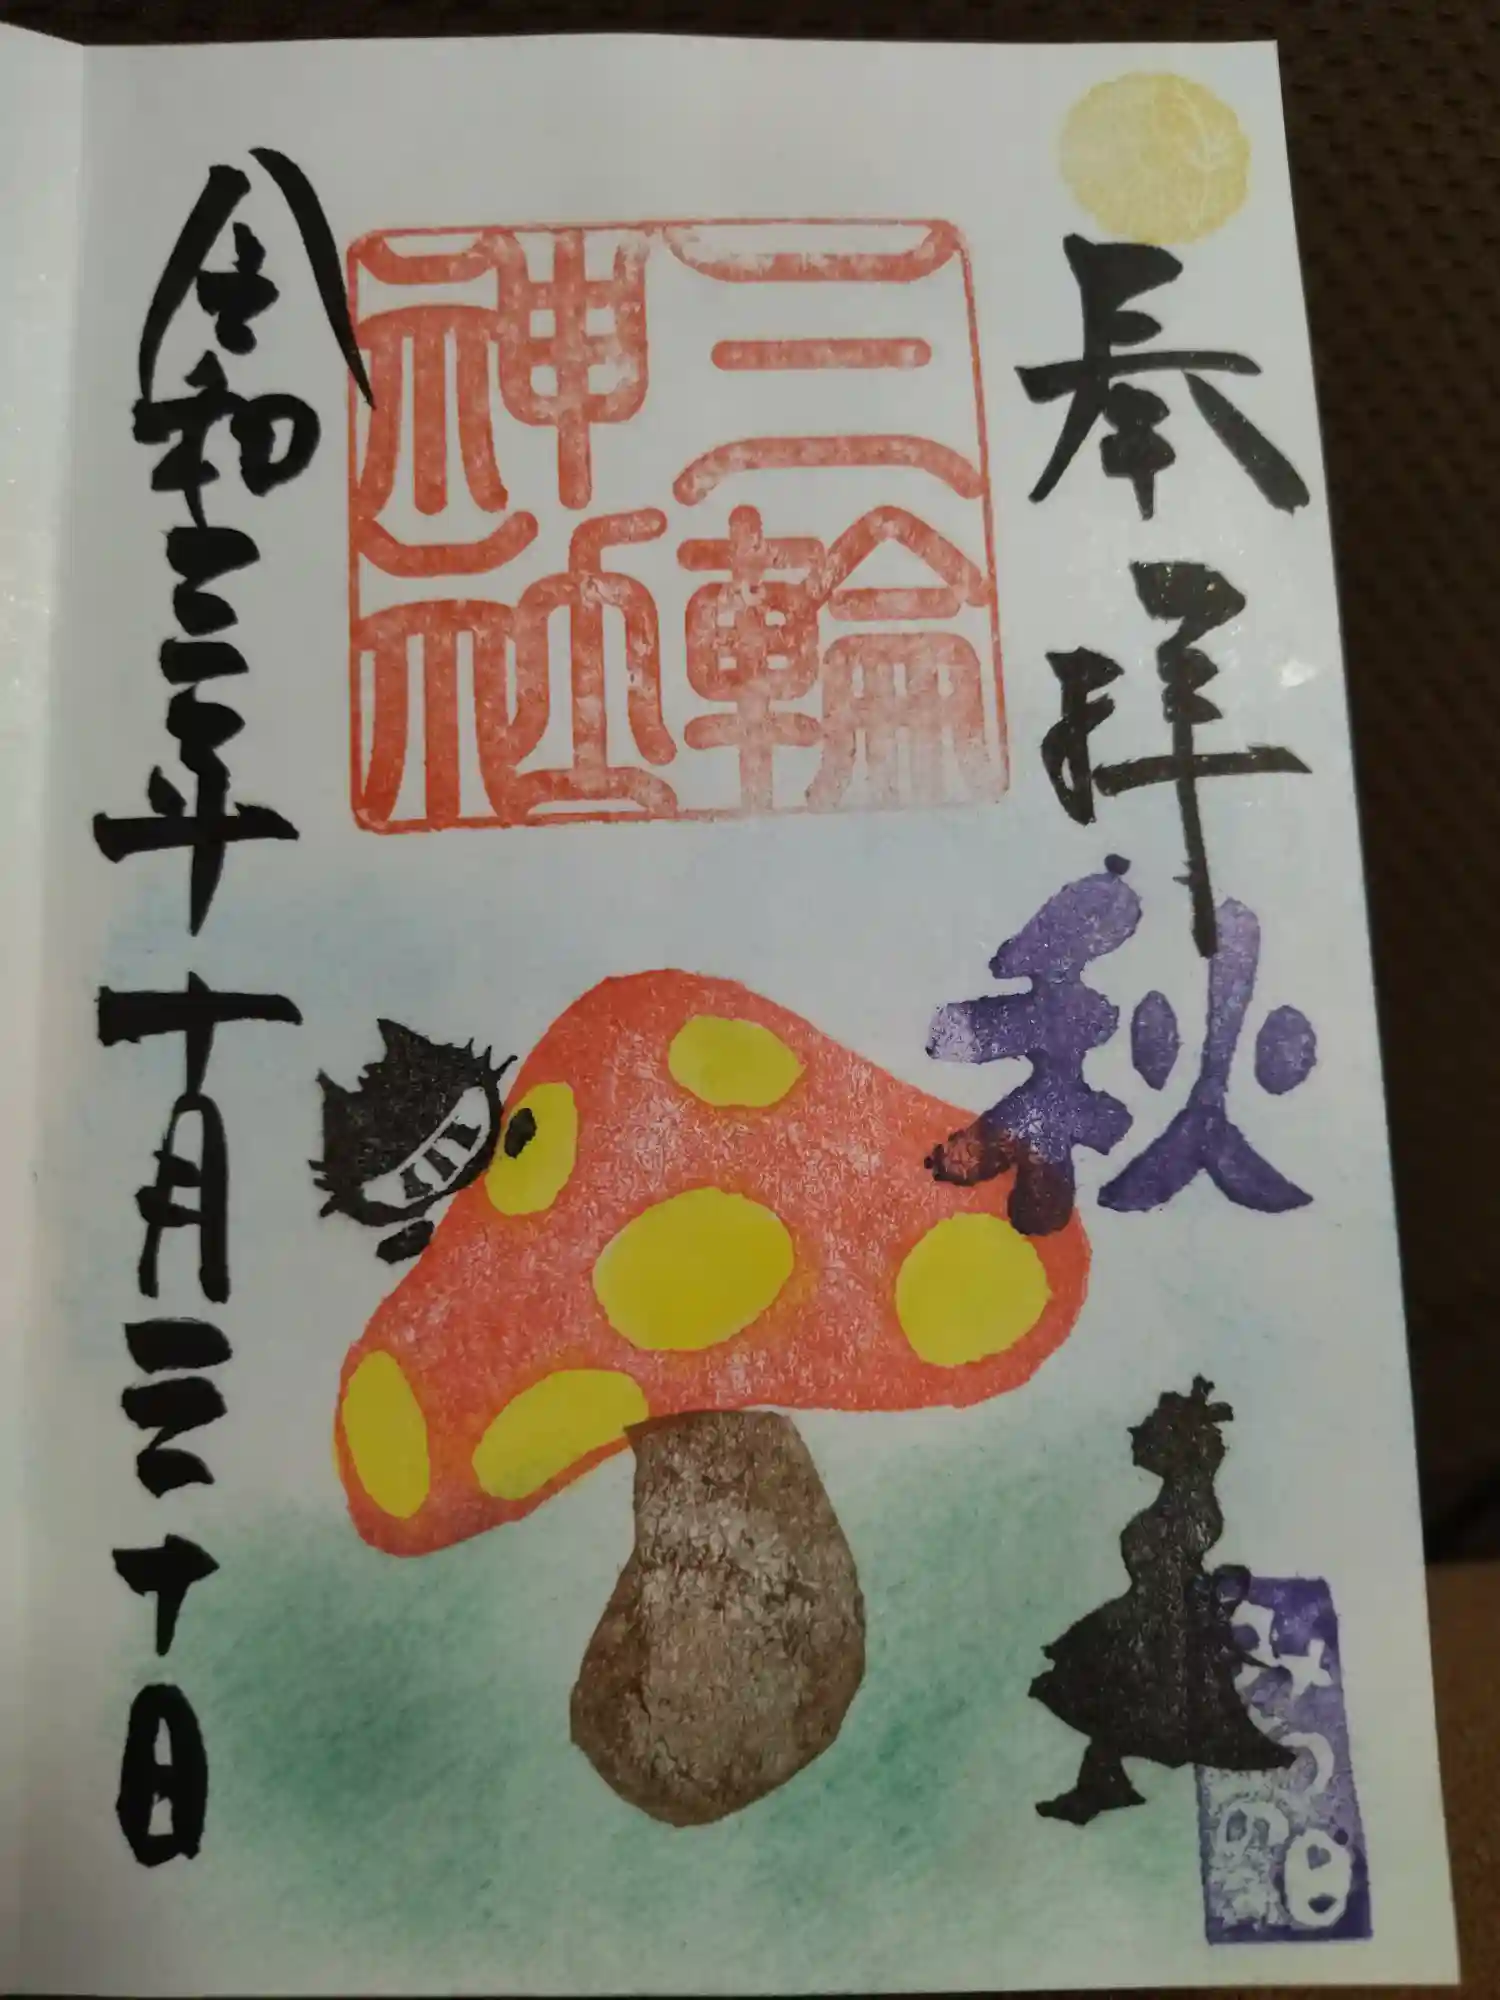 奉拝
秋
みつの日
三輪
神社
令和三年十月三十日